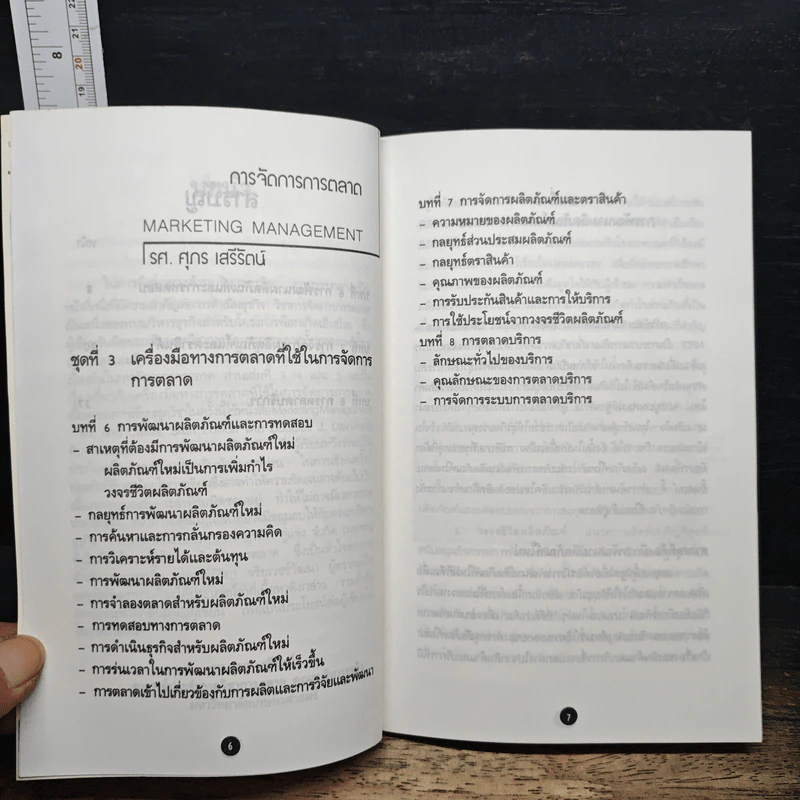 8
21
20
19
การจัดการการตลาด
MARKETING MANAGEMENT
รศ. ศุภร เสรีรัตน์
ชุดที่ 3 เครื่องมือทางการตลาดที่ใช้ในการจัดการ
การตลาด
บทที่ 6 การพัฒนาผลิตภัณฑ์และการทดสอบ
- สาเหตุที่ต้องมีการพัฒนาผลิตภัณฑ์ใหม่
ผลิตภัณฑ์ใหม่เป็นการเพิ่มกำไร
วงจรชีวิตผลิตภัณฑ์
- กลยุทธ์การพัฒนาผลิตภัณฑ์ใหม่
- การค้นหาและการกลั่นกรองความคิด
- การวิเคราะห์รายได้และต้นทุน
- การพัฒนาผลิตภัณฑ์ใหม่
- การจำลองตลาดสำหรับผลิตภัณฑ์ใหม่
- การทดสอบทางการตลาด
- การดำเนินธุรกิจสำหรับผลิตภัณฑ์ใหม่
- การร่นเวลาในการพัฒนาผลิตภัณฑ์ให้เร็วขึ้น
- การตลาดเข้าไปเกี่ยวข้องกับการผลิตและการวิจัยและพัฒนา
6
บทที่ 7 การจัดการผลิตภัณฑ์และตราสินค้า
- ความหมายของผลิตภัณฑ์
- กลยุทธ์ส่วนประสมผลิตภัณฑ์
- กลยุทธ์ตราสินค้า
- คุณภาพของผลิตภัณฑ์
- การรับประกันสินค้าและการให้บริการ
- การใช้ประโยชน์จากวงจรชีวิตผลิตภัณฑ์
บทที่ 8 การตลาดบริการ
- ลักษณะทั่วไปของบริการ
- คุณลักษณะของการตลาดบริการ
- การจัดการระบบการตลาดบริการ
7